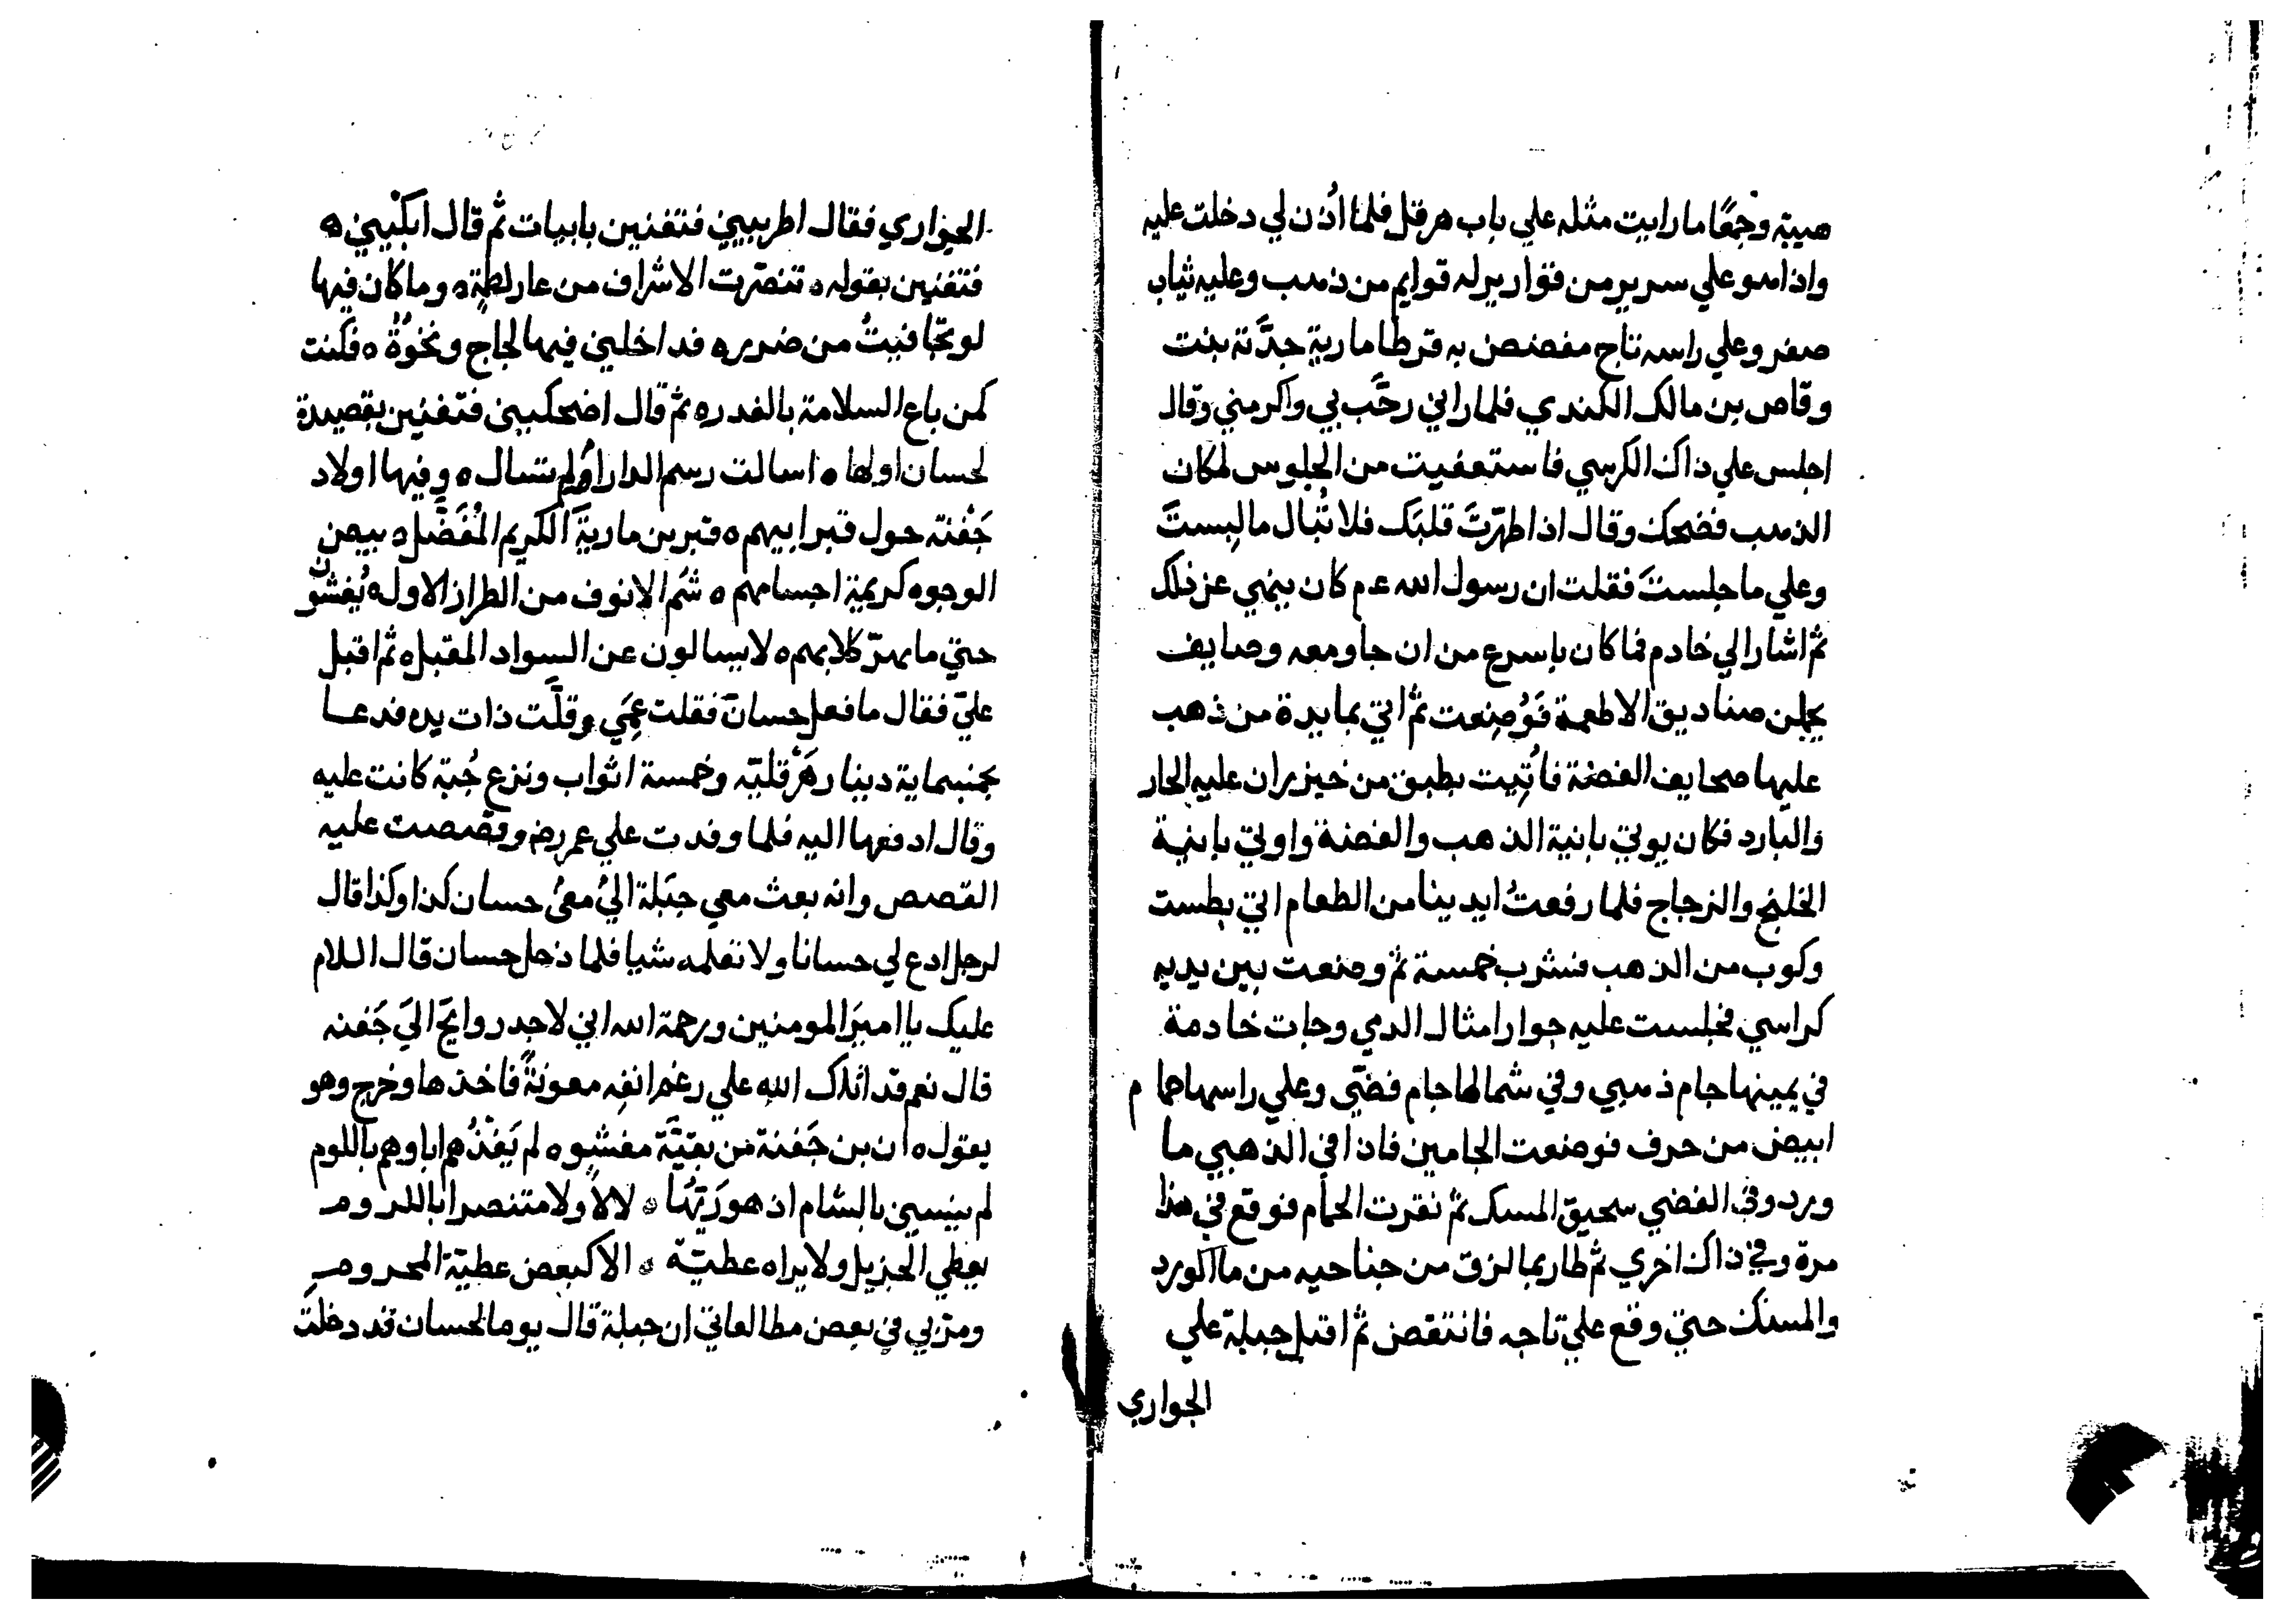 هيبة وجمعًا ما رايت مثله علي باب هرقل فلما اُذن لي دخلت عليه
واذا هو علي سرير من قوارير له قوايم من ذهب وعليه ثياب
صفر وعلي راسه تاج مفصص به قرطا مارية جدّته بنت
وقاص بن مالك الكندي فلما راني رحَّب بي واكرمني وقال
اجلس علي ذاك الكرسي فاستعفيت من الجلوس لمكان
الذهب فضحك وقال اذا طهّرتَ قلبَك فلا تُبال ما لبِستَ
وعلي ما جلستَ فقلت ان رسول الله عم كان ينهي عن ذلك
ثم اشار الي خادم فما كان باسرع من ان جا ومعه وصايف
يحملن صناديق الاطعمة فَوُضِعت ثم اتي بمايدة من ذهب
عليها صحايف الفضة فاُتِيت بطبق من خيزران عليه الحار
والبارد فكان يوتي بانية الذهب والفضة واوتي بانية
الخلنج والزجاج فلما رفعتُ ايدينا من الطعام اتي بطست
وكوب من الذهب فشرب خمسة ثم وضعت بين يديه
كراسي فجلست عليه جوار امثال الدمي وجات خادمة
في يمينها جام ذهبي وفي شمالها جام فضّي وعلي راسها حمام
ابيض من حرف فوضعت الجامين فاذا في الذهبي ما
ورد وفي الفضي سحيق المسك ثم نقرت الحمام فوقع في هذا
مرة وفي ذاك اخري ثم طار بما لزق من جناحيه من ما الورد
والمسك حتي وقع علي تاجه فانتقض ثم اقبل جبلة علي
الجواري
الجواري فقال اطربيني فتغنين بابيات ثم قال ابكْيني ه
فتغنين بقوله ه تنصّرت الاشراف من عار لطمةٍ ه وما كان فيها
لو تجافيتُ من ضرر ه فداخلني فيها لجاج ونخوُةٌ ه فكنت
كمن باع السلامة بالغدر ه ثم قال اضحكيني فتغنين بقصيدة
لحسان اولها ه اسالت رسم الدار اَوْ لم تسال ه وفيها اولاد
جَفْنة حول قبر ابيهم ه قبر بن مارية الكريم المُفَضَّل ه بيض
الوجوه كريمة احسابهم ه شُم الانوف من الطراز الاول ه يُغشَون
حتي ما يهرّ كلابهم ه لا يسالون عن السواد المقبل ه ثم اقبل
عليّ فقال ما فعل حسانَ فقلت عَمِي وقلَّت ذات يده فدعا
بخمسماية دينار هِرَقليّه وخمسة اثواب ونزع جُبة كانت عليه
وقال ادفعها اليه فلما وفدت علي عمر رض وقصصت عليه
القصص وانه بعث معي جبَلة الي معيُ حسان كذا وكذا قال
لرجل ادع لي حسانا ولا تعلمه شيا فلما دخل حسان قال السلام
عليك يا اميرَ المومنين ورحمة الله اني لاجد روايح الَي جَفنه
قال نعم قد اتاك الله علي رغم انفِه معونةً فاخذها وخرج وهو
يقول ه ان بن جَفنة من بقيَّة معشر ه لم يَغْذُهم اباوهم باللوم
لم ينسني بالشام اذ هو رَبّهَا ه لالا ولا متنصرا بالروم
يعطي الجزيل ولا يراه عطيّة ه الا كبعض عطيّة المحروم
ومرّ بي في بعض مطالعاتي ان جبلة قال يوما لحسان قد دخلتَ